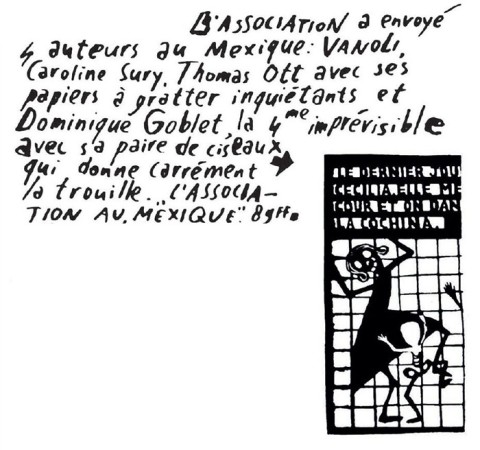 L'ASSOCIATION a envoyé
4 auteurs au Mexique: VANOLI,
Caroline Sury, Thomas Ott avec ses
papiers à gratter inquiétants et
Dominique Goblet, la 4me imprévisible
avec sa paire de ciseaux
qui donne carrément
la trouille... L'ASSOCIA-
TION AU MEXIQUE". 89ff.
LE DERNIER JOU
CECILIA. ELLE ME
COUR ET ON DAN
LA COCHINA.